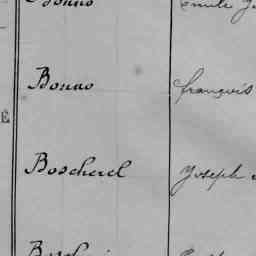 Bonno Emile
Bonno françois
É
Boscherel Joseph